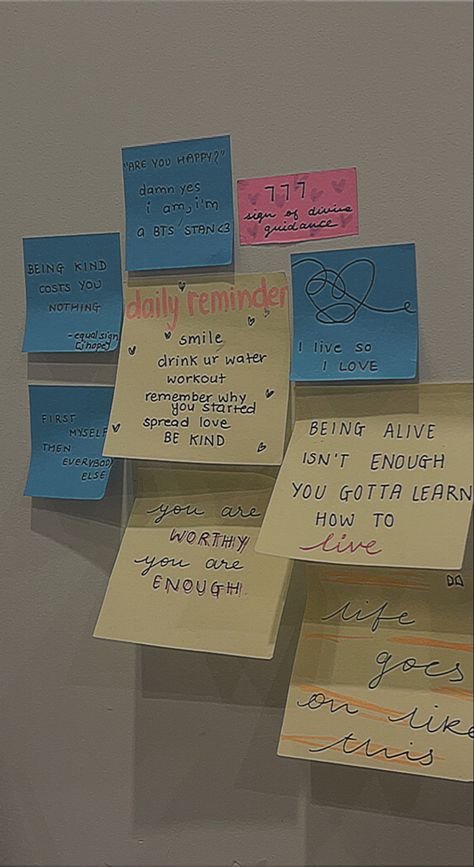 "ARE YOU HAPPY?"
damn yes
i am, i'm
a BTS STAN<3
777
sign of divine
guidance
BEING KIND
COSTS YOU
NOTHING
-equalsign
(jhope)
daily reminder
smile
drink ur water
workout
remember why
you started
spread love
BE KIND
I live so
I LOVE
FIRST
MYSELF
THEN
EVERYBODY
ELSE
BEING ALIVE
ISN'T ENOUGH
YOU GOTTA LEARN
HOW TO
live
you are
WORTHY
you are
ENOUGH.
life
goes
on like
this